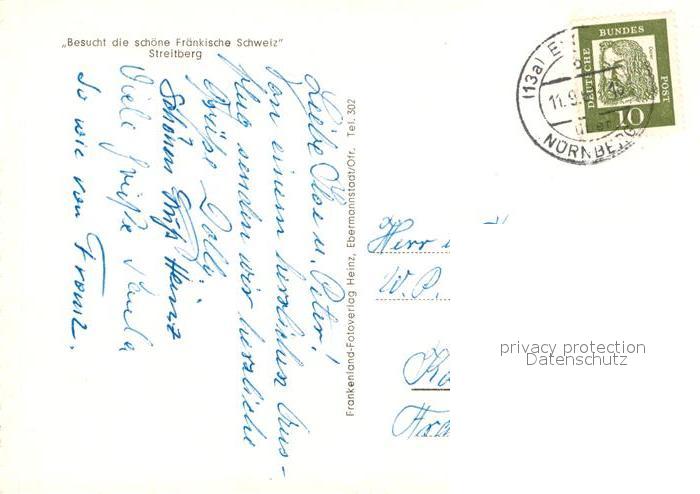 „Besucht die schöne Fränkische Schweiz"
Streitberg
Liebe Ilse u. Peter!
Von einem herrlichen Aus-
flug senden wir herzliche
Grüße Dally
Schönen Gruß Heinz
Viele Grüße Paula
So wie von Franz.
Frankenland-Fotoverlag Heinz, Ebermannstadt/Ofr. Tel. 302
DEUTSCHE BUNDES POST
Dürer
10
(13a)
11.9.
NÜRNBERG
Herr
W. P.
privacy protection
Datenschutz